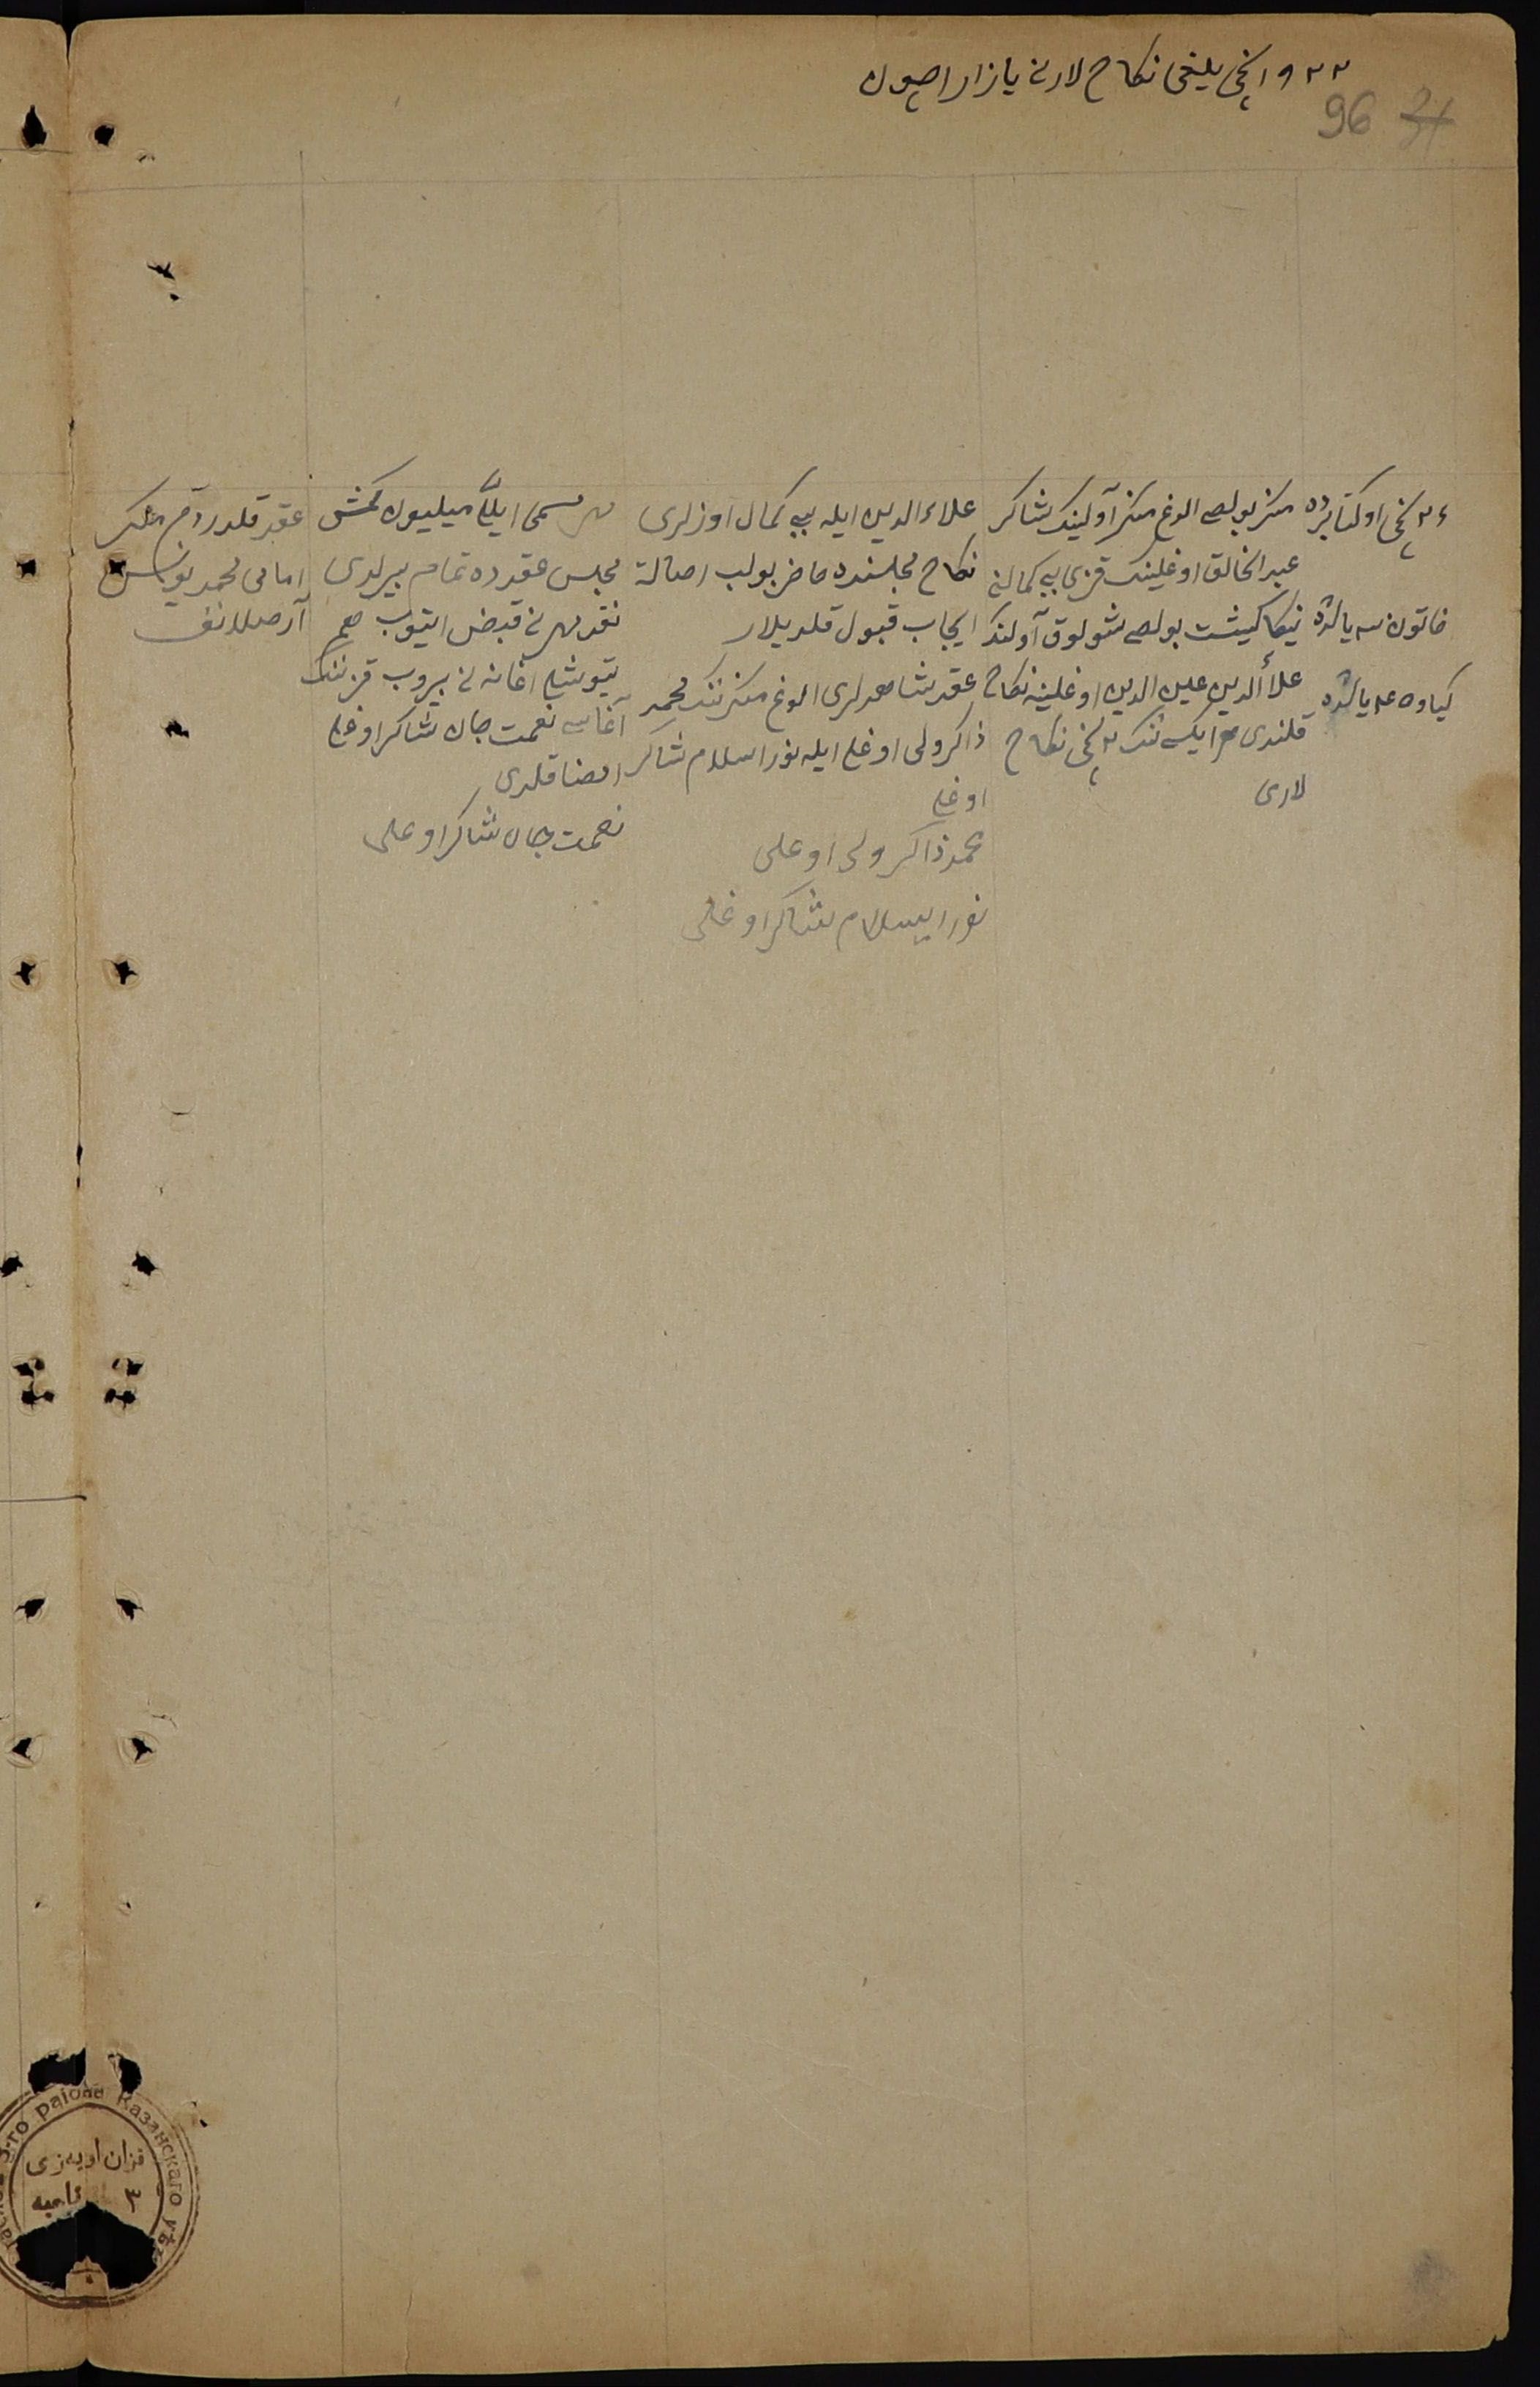 ۱۹۲۲ نچی یلغی نکاح لارنی یازار اچون
96
۲۴ نچی اوکتابرده
خاتون سه یالشده
کیاوه عه یالشده
منگر بولصی الوغ منگر آولینک شاکر
عبد الخالق اوغلینک قزی بی‌بی کمالنی
نیکا کیشت بولصی شولوق آولندا
علاءالدین عین الدین اوغلینه نکاح
قلندی هر ایکسی ننک ۲ نچی نکاح
لاری
علاء الدین ایله بی‌بی کمال اوزلری
نکاح مجلسنده حاضر بولب اصالة
ایجاب قبول قلدیلار
عقد شاهدلری الوغ منگر ننک محمد
ذاکر ولی اوغلی ایله نور اسلام شاکر
اوغلی
محمد ذاکر ولی اوغلی
نور ایسلام شاکر اوغلی
مهر مسمی ایللی میلیون کمش
مجلس عقدده تمام بیرلدی
نقد مهر نی قبض ایتوب هم
تیوشلی اغانه نی بیروب قز ننک
آغاسی نعمت جان شاکر اوغلی
امضا قلدی
نعمت جان شاکر اوغلی
عقد قلدردم منگر
امامی محمد یونس
آرصلانف
3-го раіона Казанскаго уѣз
قزان اویه‌زی
۳ ناحیه